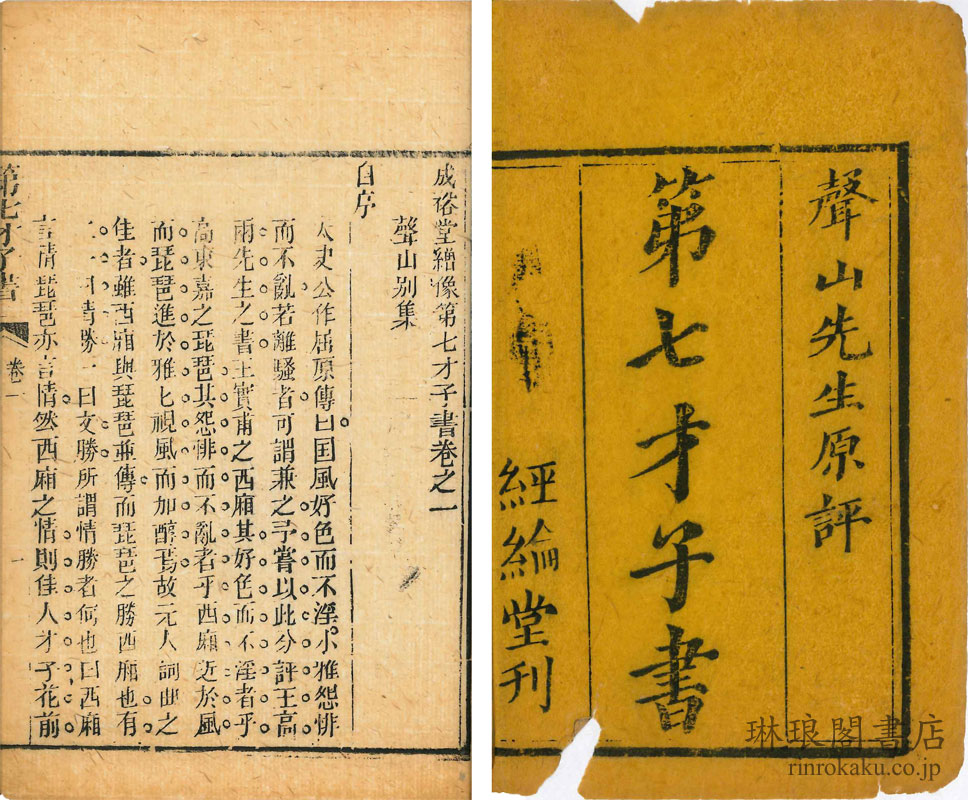 聲山先生原評
第七才子書
經綸堂刊
成裕堂繪像第七才子書卷之一
聲山別集
自序
太史公作屈原傳曰国風好色而不淫小雅怨悱
而不亂若離騷者可謂兼之予嘗以此分評王高
兩先生之書王實甫之西廂其好色而不淫者乎
高東嘉之琵琶其怨悱而不亂者乎西廂近於風
而琵琶進於雅匕視風而加醇焉故元人詞曲之
佳者雖西廂與琵琶並傳而琵琶之勝西廂也有
二一曰情勝一曰文勝所謂情勝者何也曰西廂
言情琵琶亦言情然西廂之情則佳人才子花前
第七才子書
卷一
一
琳琅閣書店
rinrokaku.co.jp